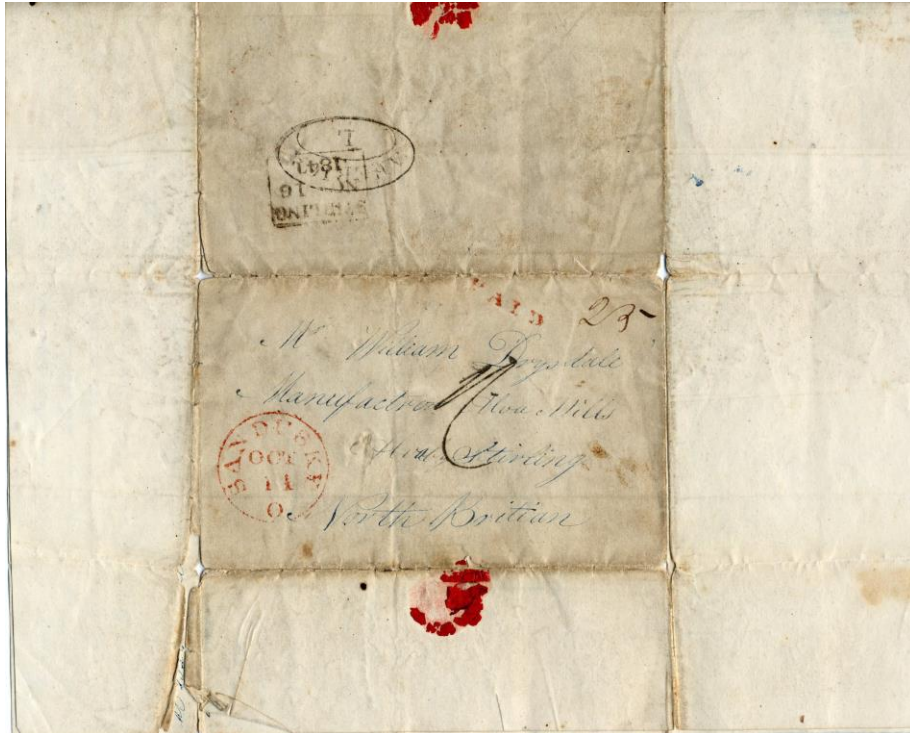 L
1847
NO 16
STIRLING
PAID
25
Mr William Drysdale
Manufacturer Alloa Mills
Alloa Stirling
North Britian
SANDUSKY
OCT
11
O